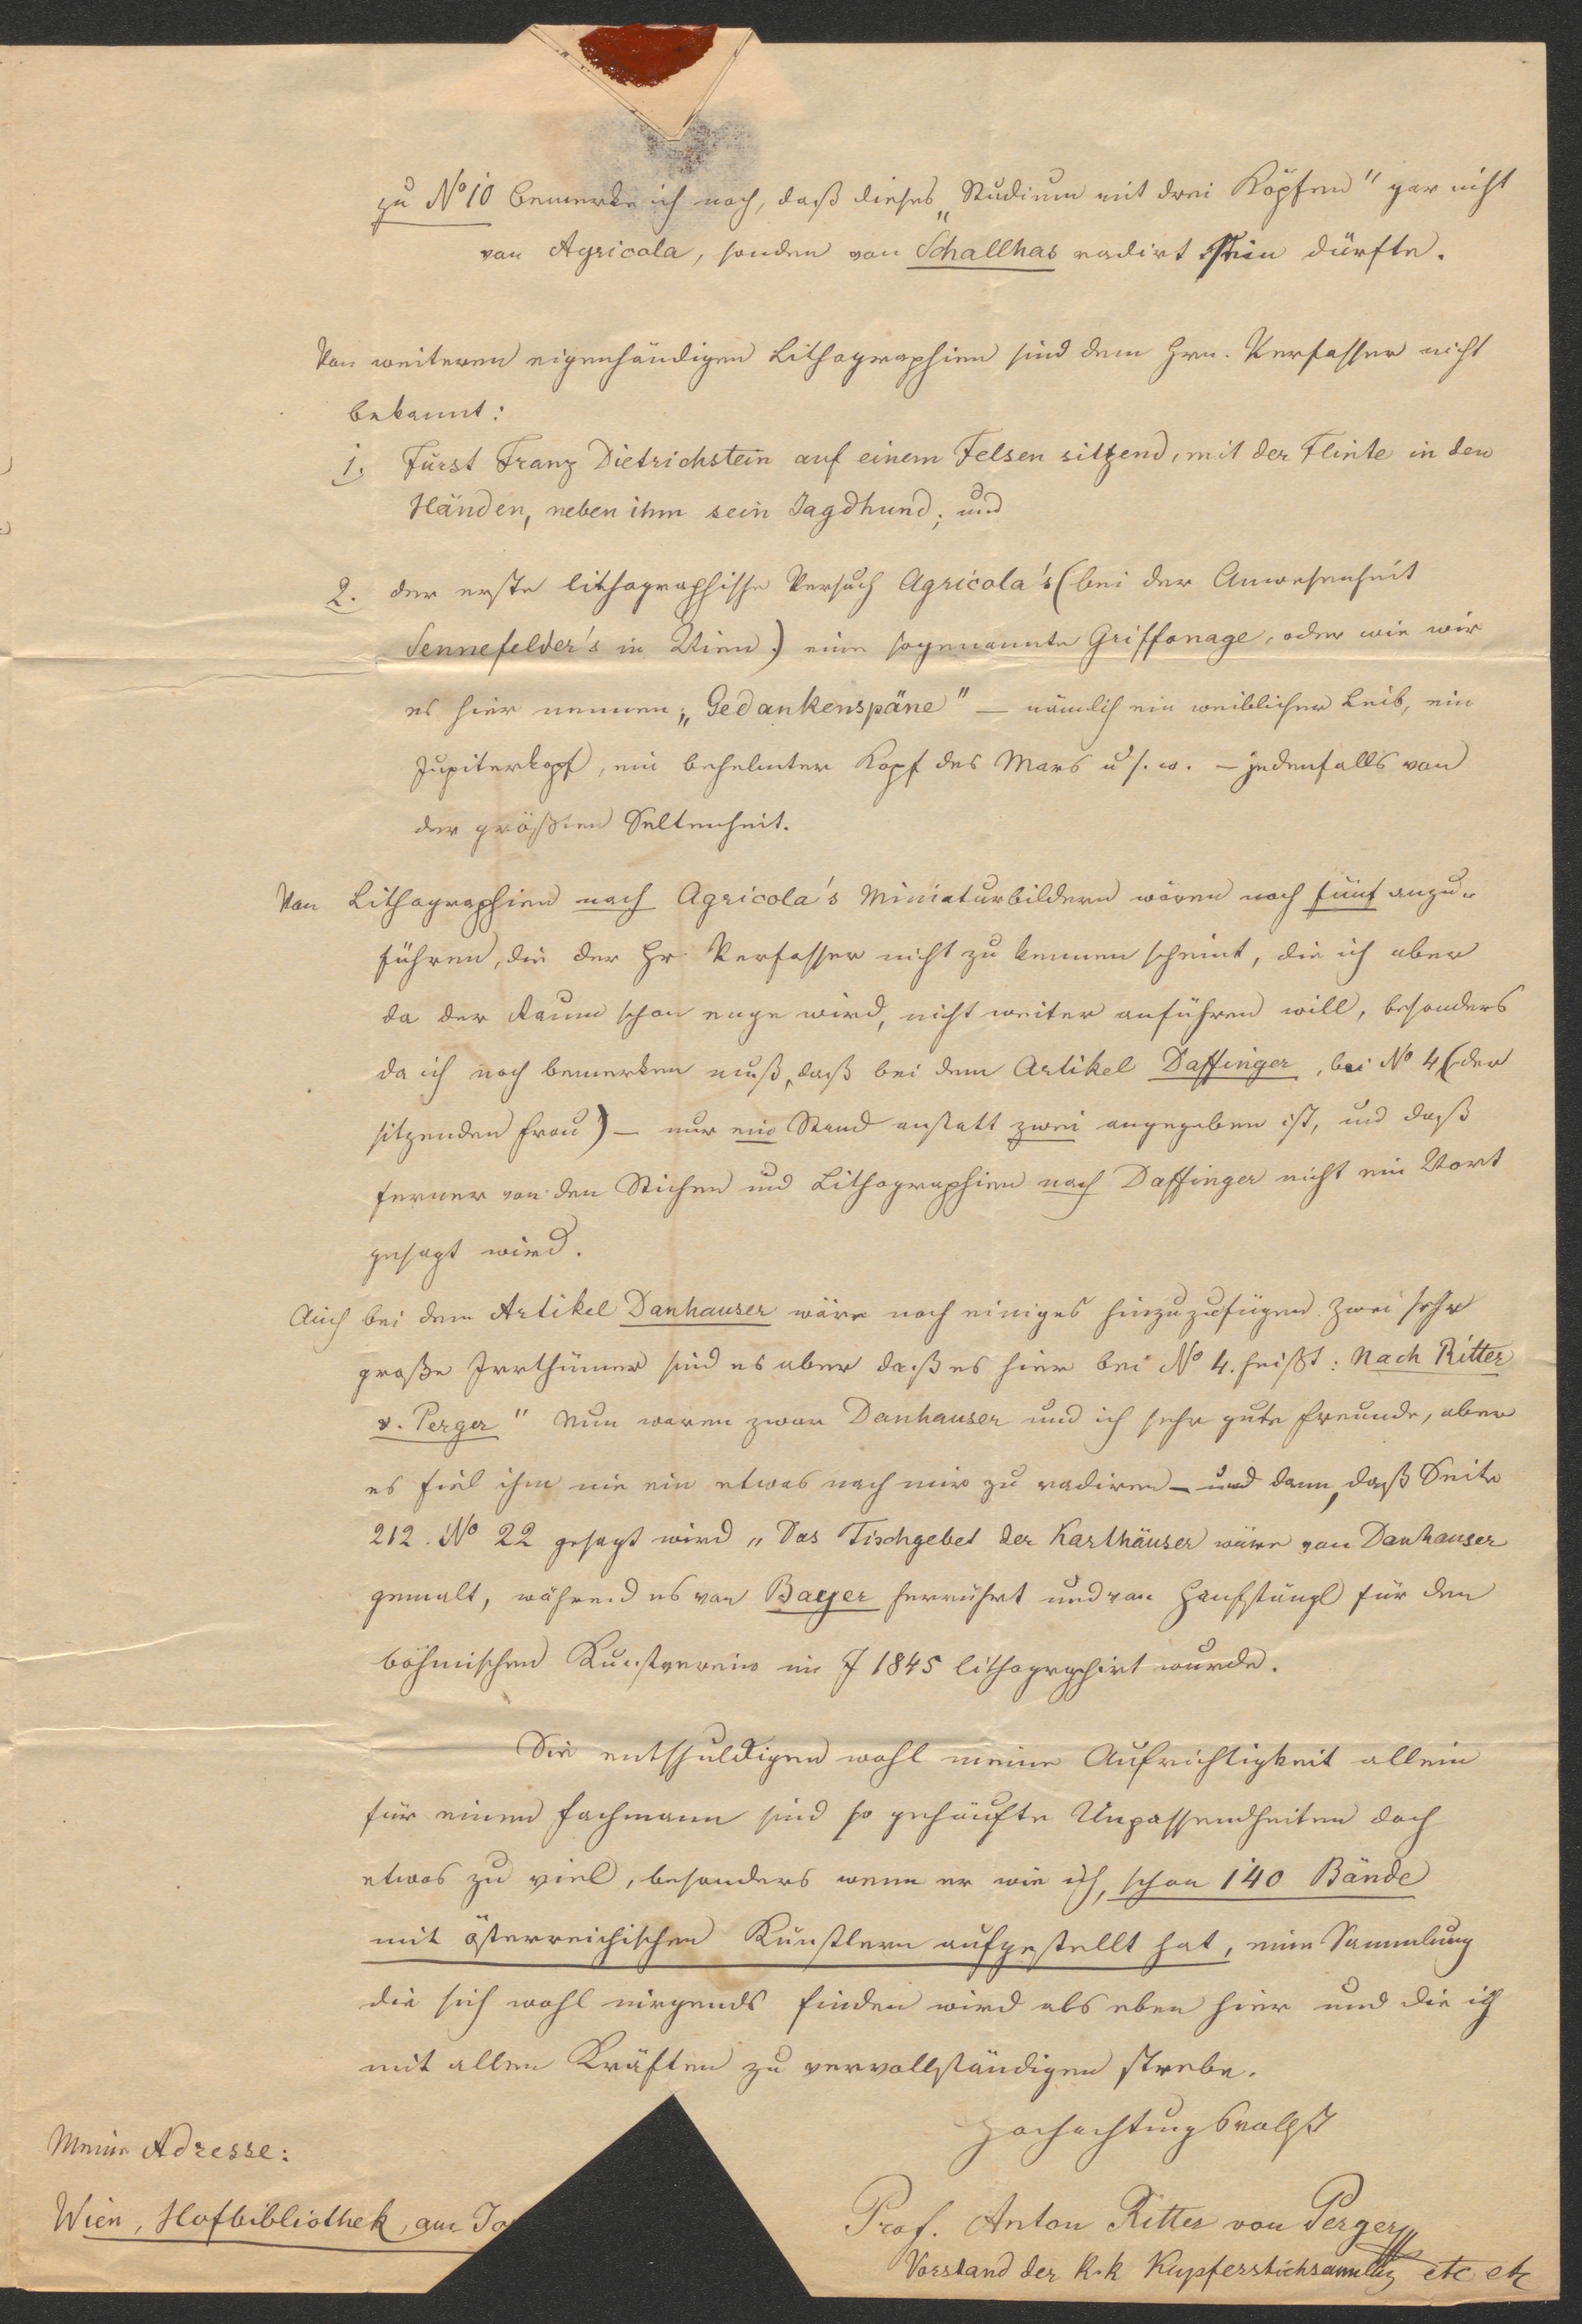 zu No 10 bemerke ich noch, daß dieses „Studium mit drei Köpfen" gar nicht
von Agricola, sondern von Schallhas radirt sein dürfte.
Von weiteren eigenhändigen Lithographien sind dem Hrn. Verfasser nicht
bekannt:
1. Fürst Franz Dietrichstein auf einem Felsen sitzend, mit der Flinte in den
Händen, neben ihm sein Jagdhund; und
2. der erste lithographische Versuch Agricola's (bei der Anwesenheit
Sennefelder's in Wien) eine sogenannte Griffonage, oder wie wir
es hier nennen: „Gedankenspäne" — nämlich ein weiblicher Leib, ein
Jupiterkopf, ein behelmter Kopf des Mars u s. w. — jedenfalls von
der größten Seltenheit.
Von Lithographien nach Agricola's Miniaturbildern wären noch fünf anzu-
führen, die der Hr Verfasser nicht zu kennen scheint, die ich aber
da der Raum schon enge wird, nicht weiter anführen will, besonders
da ich noch bemerken muß, daß bei dem Artikel Daffinger, bei No 4 (der
sitzenden Frau) — nur ein Stand anstatt zwei angegeben ist, und daß
ferner von den Stichen und Lithographien nach Daffinger nicht ein Wort
gesagt wird.
Auch bei dem Artikel Danhauser wäre noch einiges hinzuzufügen. Zwei sehr
große Irrthümer sind es aber daß es hier bei No 4. heißt: Nach Ritter
v. Perger" Nun waren zwar Danhauser und ich sehr gute Freunde, aber
es fiel ihm nie ein etwas nach mir zu radiren — und dann, daß Seite
212. No 22 gesagt wird „Das Tischgebet der Karthäuser wäre von Danhauser
gemalt, während es von Bayer herrührt und von Hanfstängl für den
böhmischen Kunstverein im J 1845 lithographirt wurde.
Sie entschuldigen wohl meine Aufrichtigkeit allein
für einen Fachmann sind so gehäufte Unpassendheiten doch
etwas zu viel, besonders wenn er wie ich, schon 140 Bände
mit österreichischen Künstlern aufgestellt hat, eine Sammlung
die sich wohl nirgends finden wird als eben hier und die ich
mit allen Kräften zu vervollständigen strebe.
Hochachtungsvollst
Prof. Anton Ritter von Perger
Vorstand der k.k Kupferstichsammlung etc etc
Meine Adresse:
Wien, Hofbibliothek, am